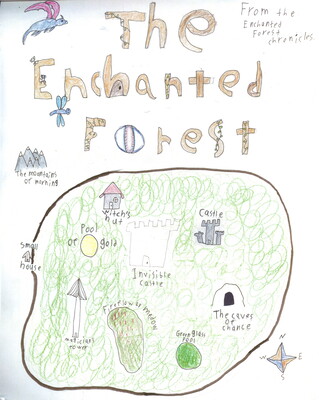 The
Enchanted
Forest
From the
Enchanted
Forest
chronicles.
The mountains
of morning
witch's
hut
Castle
Pool
of gold
Invisible
castle
Small
house
magicians
tower
The caves
of chance
Green glass
pool
N
W E
S